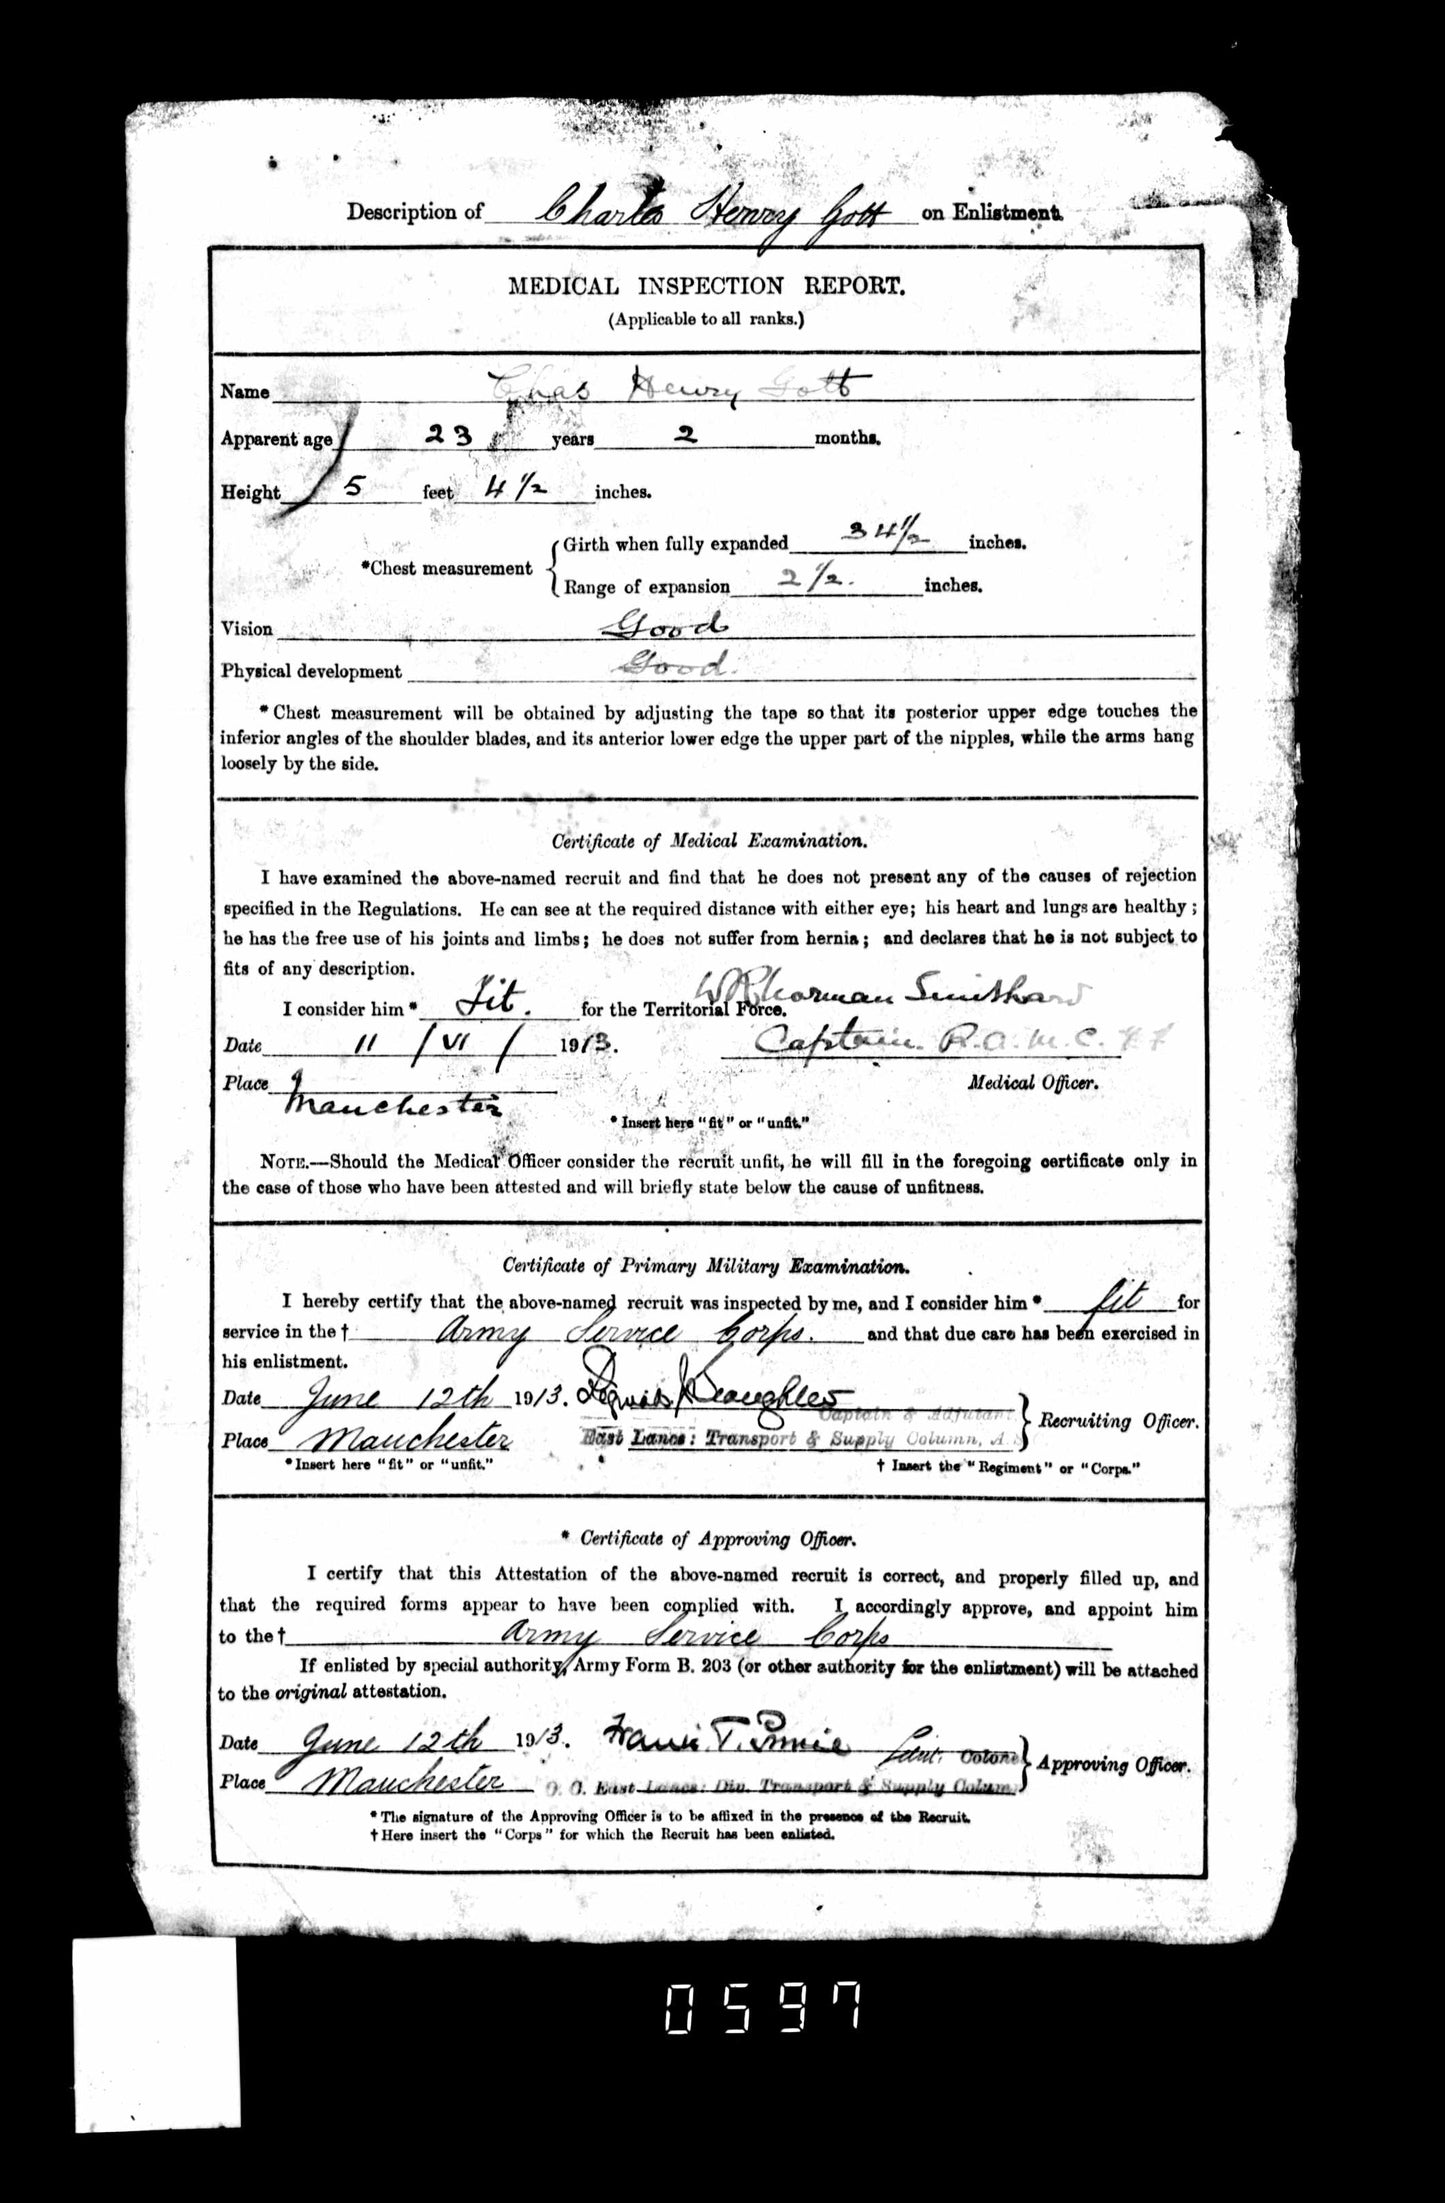 Description of Charles Henry Gott on Enlistment.
MEDICAL INSPECTION REPORT.
(Applicable to all ranks.)
Name Chas Henry Gott
Apparent age 23 years 2 months.
Height 5 feet 4 1/2 inches.
*Chest measurement { Girth when fully expanded 34 1/2 inches.
Range of expansion 2 1/2. inches.
Vision Good
Physical development Good.
* Chest measurement will be obtained by adjusting the tape so that its posterior upper edge touches the
inferior angles of the shoulder blades, and its anterior lower edge the upper part of the nipples, while the arms hang
loosely by the side.
Certificate of Medical Examination.
I have examined the above-named recruit and find that he does not present any of the causes of rejection
specified in the Regulations. He can see at the required distance with either eye; his heart and lungs are healthy;
he has the free use of his joints and limbs; he does not suffer from hernia; and declares that he is not subject to
fits of any description.
I consider him * Fit. for the Territorial Force.
Date 11 / VI / 1913. Captain R.A.M.C.
Place Manchester Medical Officer.
* Insert here "fit" or "unfit."
NOTE.—Should the Medical Officer consider the recruit unfit, he will fill in the foregoing certificate only in
the case of those who have been attested and will briefly state below the cause of unfitness.
Certificate of Primary Military Examination.
I hereby certify that the above-named recruit was inspected by me, and I consider him * fit for
service in the † Army Service Corps. and that due care has been exercised in
his enlistment.
Date June 12th 1913.
Captain & Adjutant } Recruiting Officer.
Place Manchester East Lancs: Transport & Supply Column, A.S
* Insert here "fit" or "unfit." † Insert the "Regiment" or "Corps."
* Certificate of Approving Officer.
I certify that this Attestation of the above-named recruit is correct, and properly filled up, and
that the required forms appear to have been complied with. I accordingly approve, and appoint him
to the † Army Service Corps
If enlisted by special authority, Army Form B. 203 (or other authority for the enlistment) will be attached
to the original attestation.
Date June 12th 1913. Lieut. Colone } Approving Officer.
Place Manchester O. C. East Lancs: Div. Transport & Supply Colum
* The signature of the Approving Officer is to be affixed in the presence of the Recruit.
† Here insert the "Corps" for which the Recruit has been enlisted.
0597